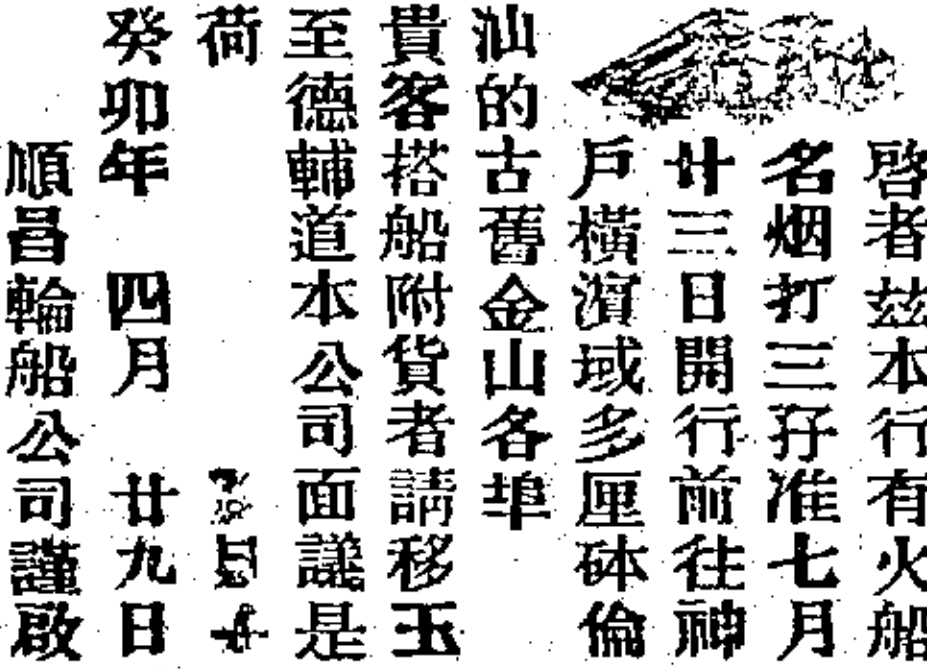 啓者玆本行有火船
名烟打三孖准七月
廿三日開行前往神
戶橫濵域多厘砵倫
汕的古舊金山各埠
貴客搭船附貨者請移玉
至德輔道本公司面議是
荷
癸卯年 四月 廿九日
順昌輪船公司謹啟